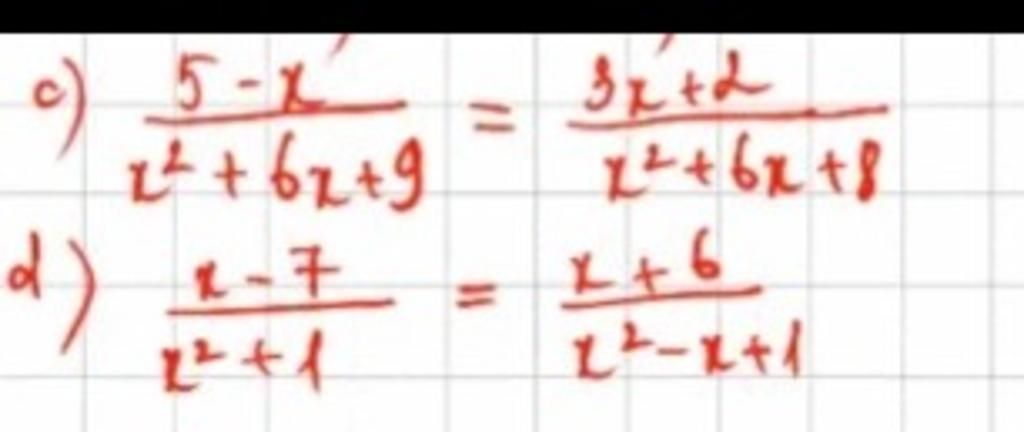 c) \frac{5-x}{x^2+6x+9} = \frac{3x+2}{x^2+6x+8}
d) \frac{x-7}{x^2+1} = \frac{x+6}{x^2-x+1}